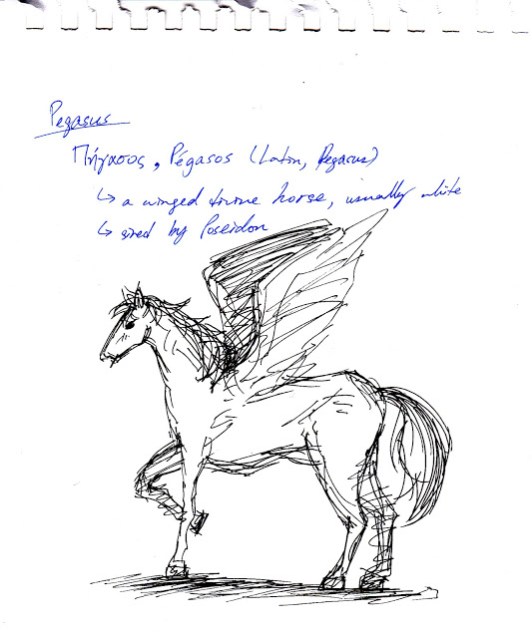 Pegasus
Πήγασος, Pégasos (Latin, Pegasus)
↳ a winged divine horse, usually white
↳ sired by Poseidon